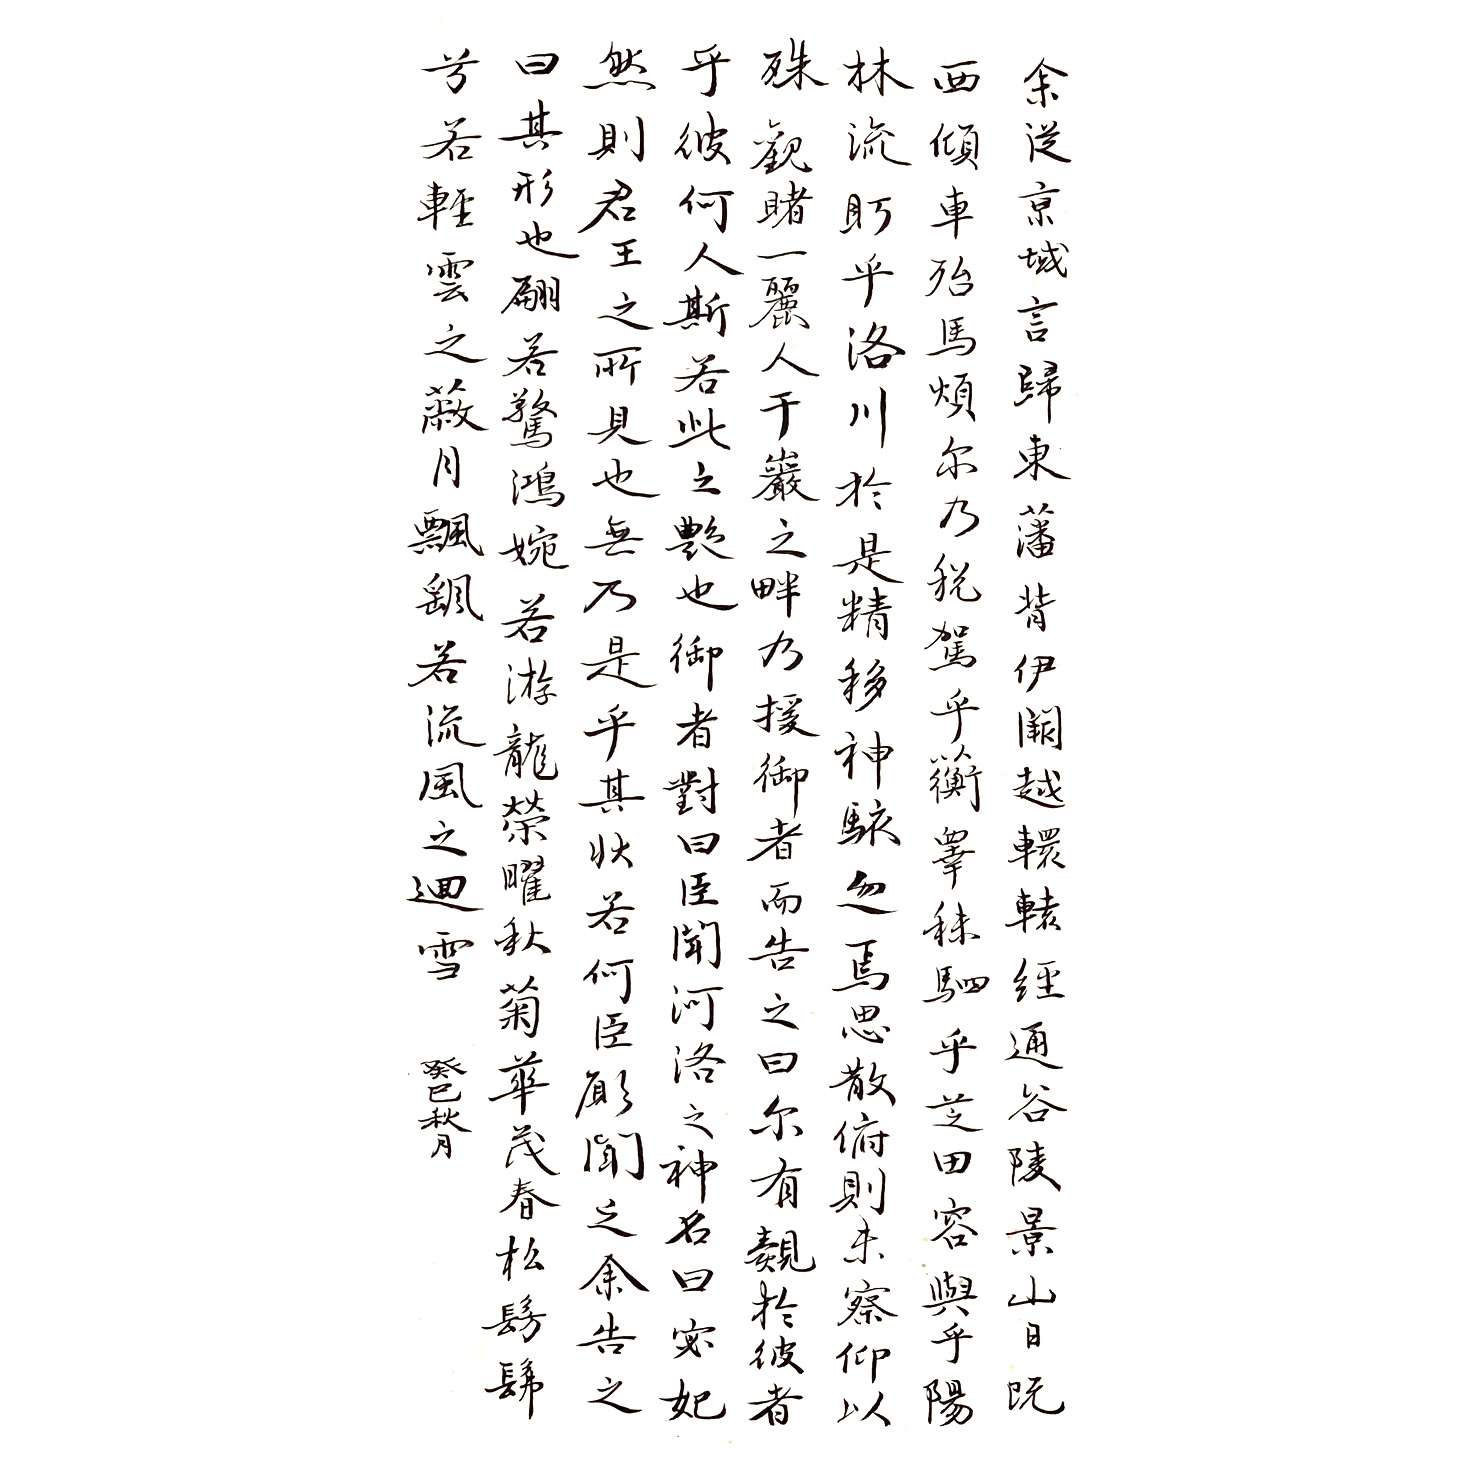 余從京域言歸東藩背伊闕越轘轅經通谷陵景山日既
西傾車殆馬煩尔乃稅駕乎蘅睪秣駟乎芝田容與乎陽
林流眄乎洛川於是精移神駭忽焉思散俯則未察仰以
殊觀睹一麗人于巖之畔乃援御者而告之曰尔有覿於彼者
乎彼何人斯若此之艷也御者對曰臣聞河洛之神名曰宓妃
然則君王之所見也無乃是乎其狀若何臣願聞之余告之
曰其形也翩若驚鴻婉若游龍榮曜秋菊華茂春松髣髴
兮若輕雲之蔽月飄飖若流風之迴雪
癸巳秋月